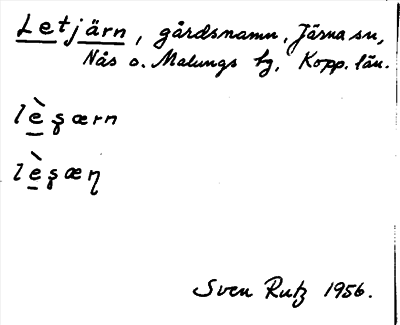 Letjärn, gårdsnamn, Järna sn,
Nås o. Malungs tg, Kopp. län.
lè̠ʂærn
lè̠ʂæɳ
Sven Rutz 1956.